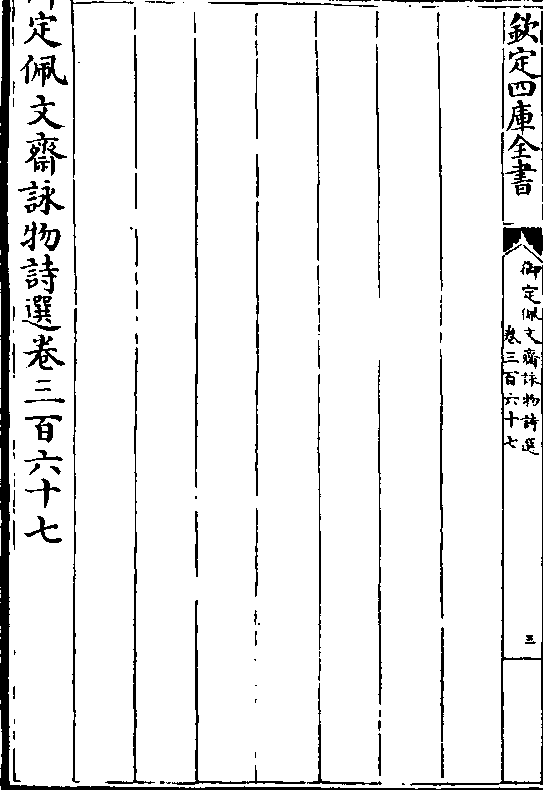 欽定四庫全書
御定佩文齋詠物詩選
卷三百六十七
三
御定佩文齋詠物詩選卷三百六十七